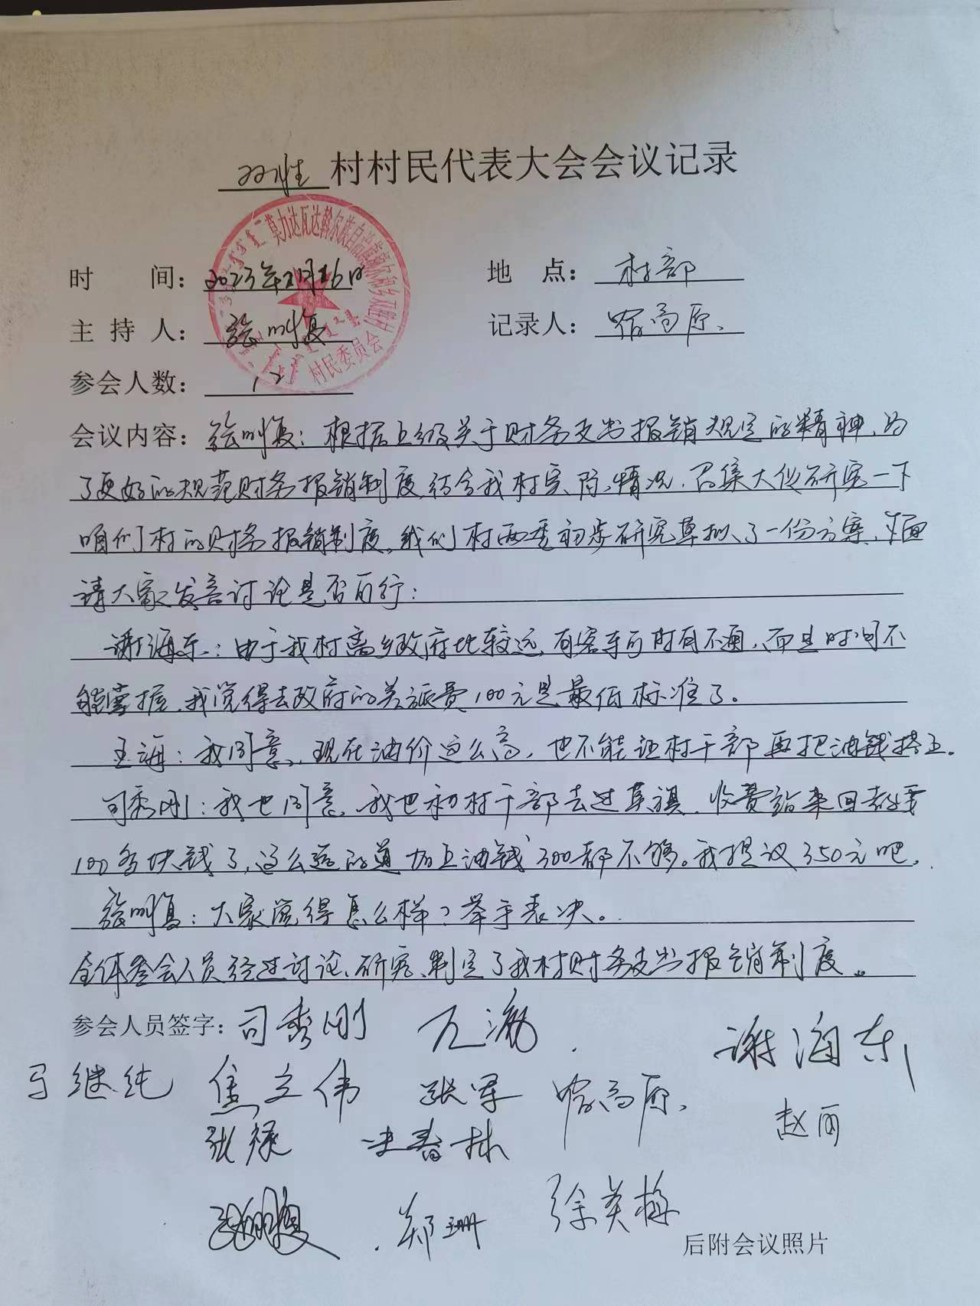 村村民代表大会会议记录
莫力达瓦达斡尔族自治旗
村民委员会
时 间：2023年 月26日 地 点：村部
主 持 人： 记录人：高原
参会人数：12
会议内容：根据上级关于财务支出报销规定的精神，为
了更好的规范财务报销制度，结合我村实际情况，召集大伙研究一下
咱们村的财务报销制度，我们村两委初步研究草拟了一份方案，下面
请大家发言讨论是否可行：
谢海东：由于我村离乡政府比较远，有客车可时有不通，而且时间不
能掌握，我觉得去政府的差旅费100元是最低标准了。
王海：我同意，现在油价这么高，也不能让村干部再把油钱搭上。
司秀刚：我也同意，我也和村干部去过莫旗，收费站来回都要
100多块钱了，这么远的道加上油钱300都不够。我提议350元吧，
大家觉得怎么样？举手表决。
全体参会人员经过讨论、研究、制定了我村财务支出报销制度。
参会人员签字：司秀刚 谢海东
马继纯 焦立伟 张军 高原
张禄 春林 赵丽
郑珊 徐英梅
后附会议照片